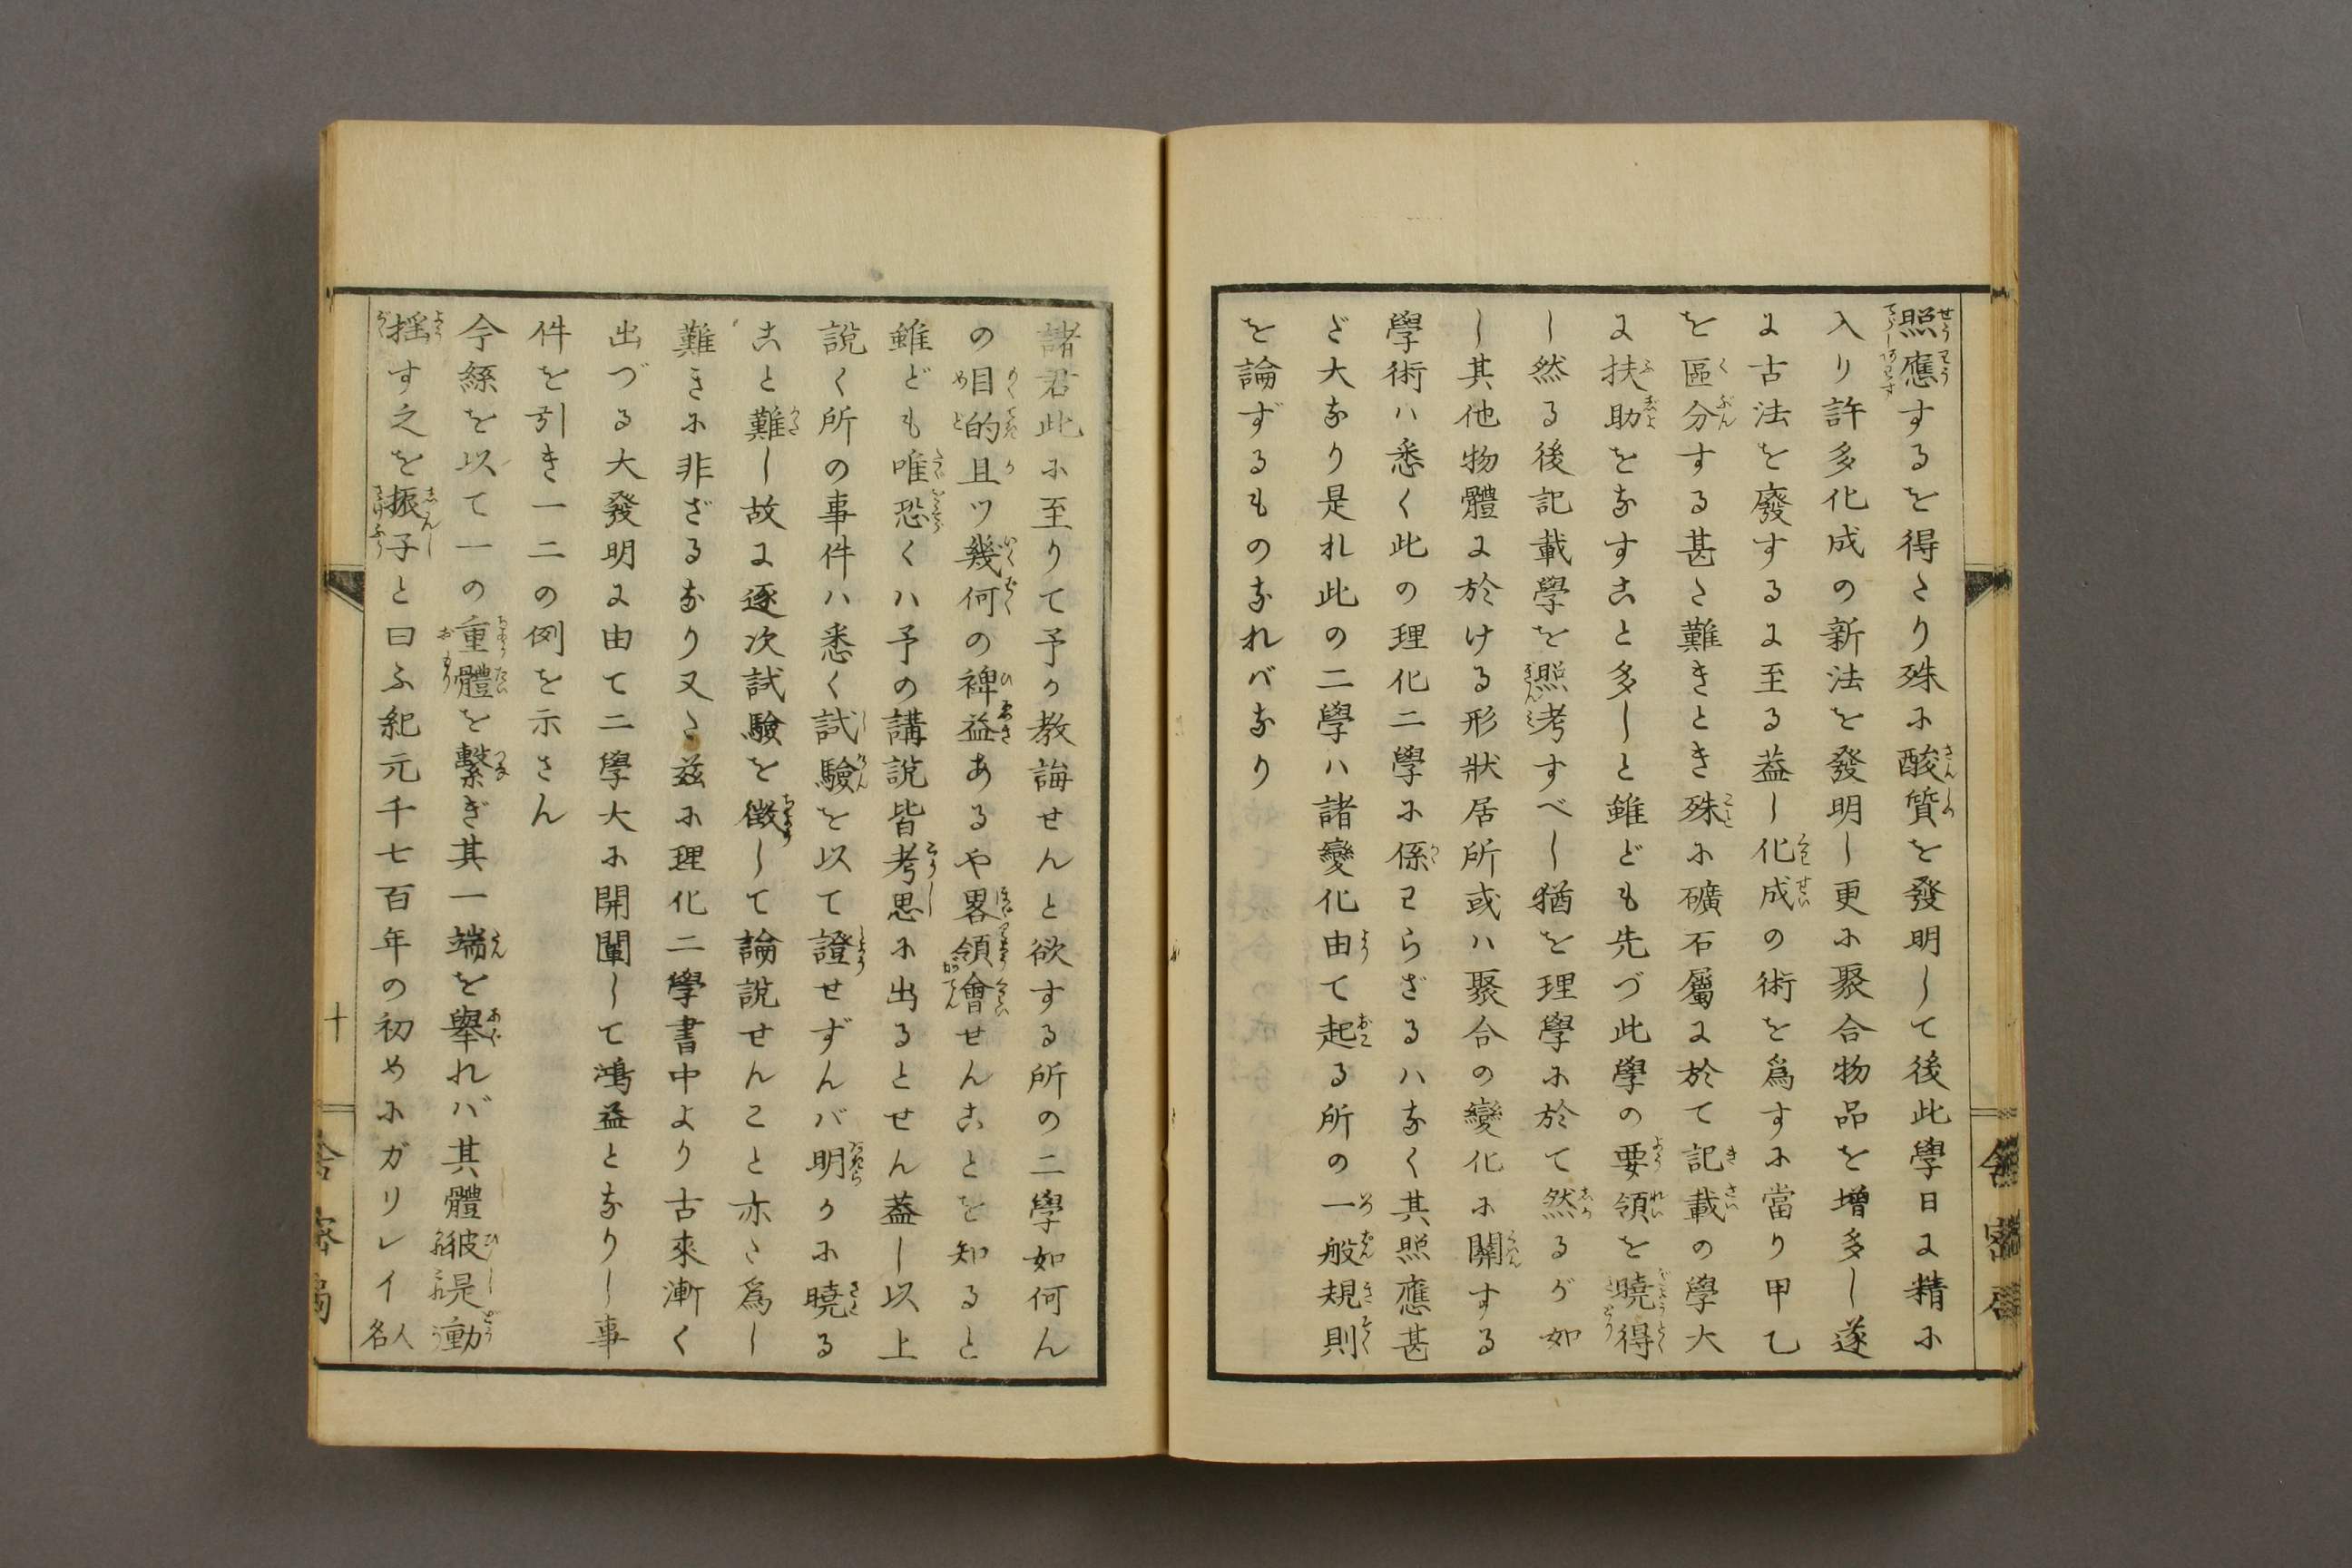 照應するを得たり殊に酸質を發明して後此學日に精に
入り許多化成の新法を發明し更に聚合物品を增多し遂
に古法を廢するに至る葢し化成の術を爲すに當り甲乙
を區分する甚だ難きとき殊に礦石屬に於て記載の學大
に扶助をなすこと多しと雖ども先づ此學の要領を曉得
し然る後記載學を照考すべし猶を理學に於て然るが如
し其他物體に於ける形狀居所或ハ聚合の變化に關する
學術ハ悉く此の理化二學に係ワらざるハなく其照應甚
ど大なり是れ此の二學ハ諸變化由て起る所の一般規則
を論ずるものなれバなり
諸君此に至りて予が教誨せんと欲する所の二學如何ん
の目的且ツ幾何の裨益あるや畧領會せんことを知ると
雖ども唯恐くハ予の講說皆考思に出るとせん葢し以上
說く所の事件ハ悉く試驗を以て證せずんバ明かに曉る
こと難し故に逐次試驗を徵して論說せんこと亦た爲し
難きに非ざるなり又た茲に理化二學書中より古來漸く
出づる大發明に由て二學大に開闡して鴻益となりし事
件を引き一二の例を示さん
今絲を以て一の重體を繫ぎ其一端を擧れバ其體彼是動
搖す之を振子と曰ふ紀元千七百年の初めにガリレイ人名
十
舍密局